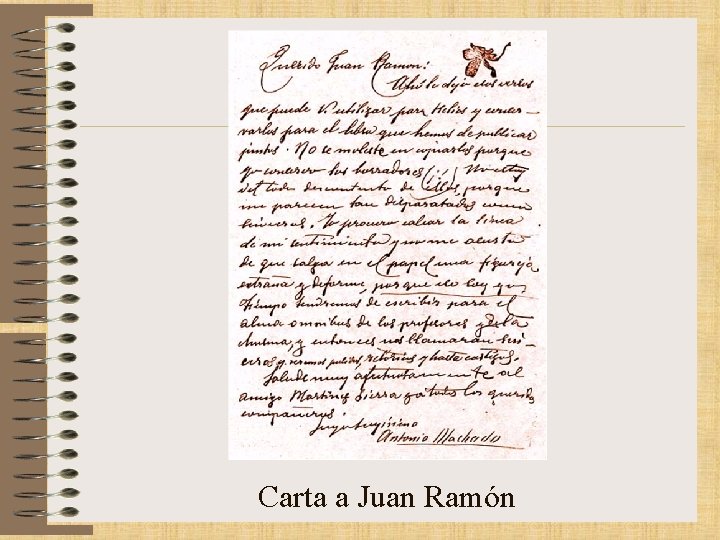 Querido Juan Ramon:
Ahí le dejo esos versos
que puede V utilizar para Helios y conser-
varlos para el libro que hemos de publicar
juntos. No se moleste en copiarlos porque
yo conservo los borradores (...) No estoy
del todo descontento de ellos, porque
me parecen tan disparatados como
sinceros. Yo procuro calcar la linea
de mi sentimiento y no me asusta
de que salga en el papel una figureja
extraña y deforme, porque eso soy yo.
Tiempo tendremos de escribir para el
alma omnibus de los profesores y de la
chusma, y entonces nos llamarán sin-
ceros y seremos retóricos y hasta castizos.
Salude muy afectuosamente al
amigo Martinez Sierra y a todos los queridos
compañeros.
Suyo suyísimo
Antonio Machado
Carta a Juan Ramón